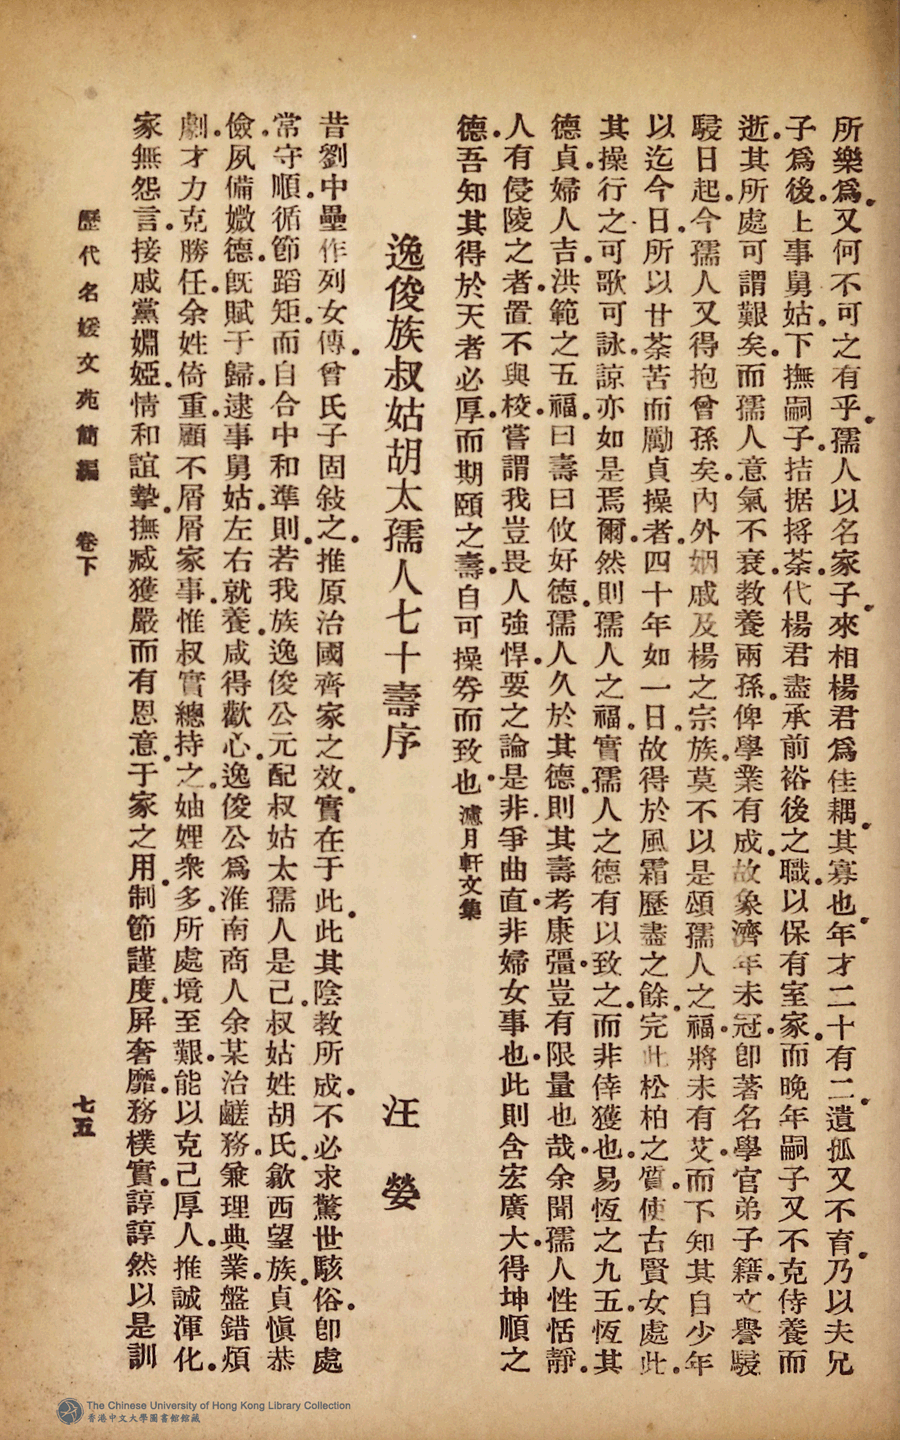 所樂爲。又何不可之有乎。孺人以名家子。來相楊君爲佳耦。其寡也。年才二十有二。遺孤又不育。乃以夫兄
子爲後。上事舅姑。下撫嗣子。拮据捋荼。代楊君盡承前裕後之職。以保有室家。而晚年嗣子又不克侍養而
逝。其所處可謂艱矣。而孺人意氣不衰。教養兩孫。俾學業有成。故象濟年未冠。卽著名學官弟子籍。文譽駸
駸日起。今孺人又得抱曾孫矣。內外姻戚及楊之宗族。莫不以是頌孺人之福。將未有艾。而下知其自少年
以迄今日。所以甘荼苦而勵貞操者。四十年如一日。故得於風霜歷盡之餘。完此松柏之質。使古賢女處此。
其操行之可歌可詠。諒亦如是焉爾。然則孺人之福。實孺人之德有以致之。而非倖獲也。易恆之九五。恆其
德。貞婦人吉。洪範之五福。曰壽曰攸好德。孺人久於其德。則其壽考康彊。豈有限量也哉。余聞孺人性恬靜。
人有侵陵之者。置不與校。嘗謂我豈畏人強悍。要之論是非爭曲直。非婦女事也。此則含宏廣大。得坤順之
德。吾知其得於天者必厚。而期頤之壽。自可操券而致也。濾月軒文集
逸俊族叔姑胡太孺人七十壽序 汪嫈
昔劉中壘作列女傳。曾氏子固敍之。推原治國齊家之效。實在于此。此其陰教所成。不必求驚世駭俗。卽處
常守順。循節蹈矩。而自合中和準則。若我族逸俊公元配叔姑太孺人是已。叔姑姓胡氏。歙西望族。貞愼恭
儉。夙備媺德。旣賦于歸。逮事舅姑。左右就養。咸得歡心。逸俊公爲淮南商人余某治鹺務。兼理典業。盤錯煩
劇。才力克勝任。余姓倚重。顧不屑屑家事。惟叔實總持之。妯娌衆多。所處境至艱。能以克己厚人。推誠渾化。
家無怨言。接戚黨嫺婭。情和誼摯。撫臧獲嚴而有恩意。于家之用。制節謹度。屏奢靡。務樸實。諄諄然以是訓
歷代名媛文苑簡編 卷下 七五
The Chinese University of Hong Kong Library Collection
香港中文大學圖書館館藏